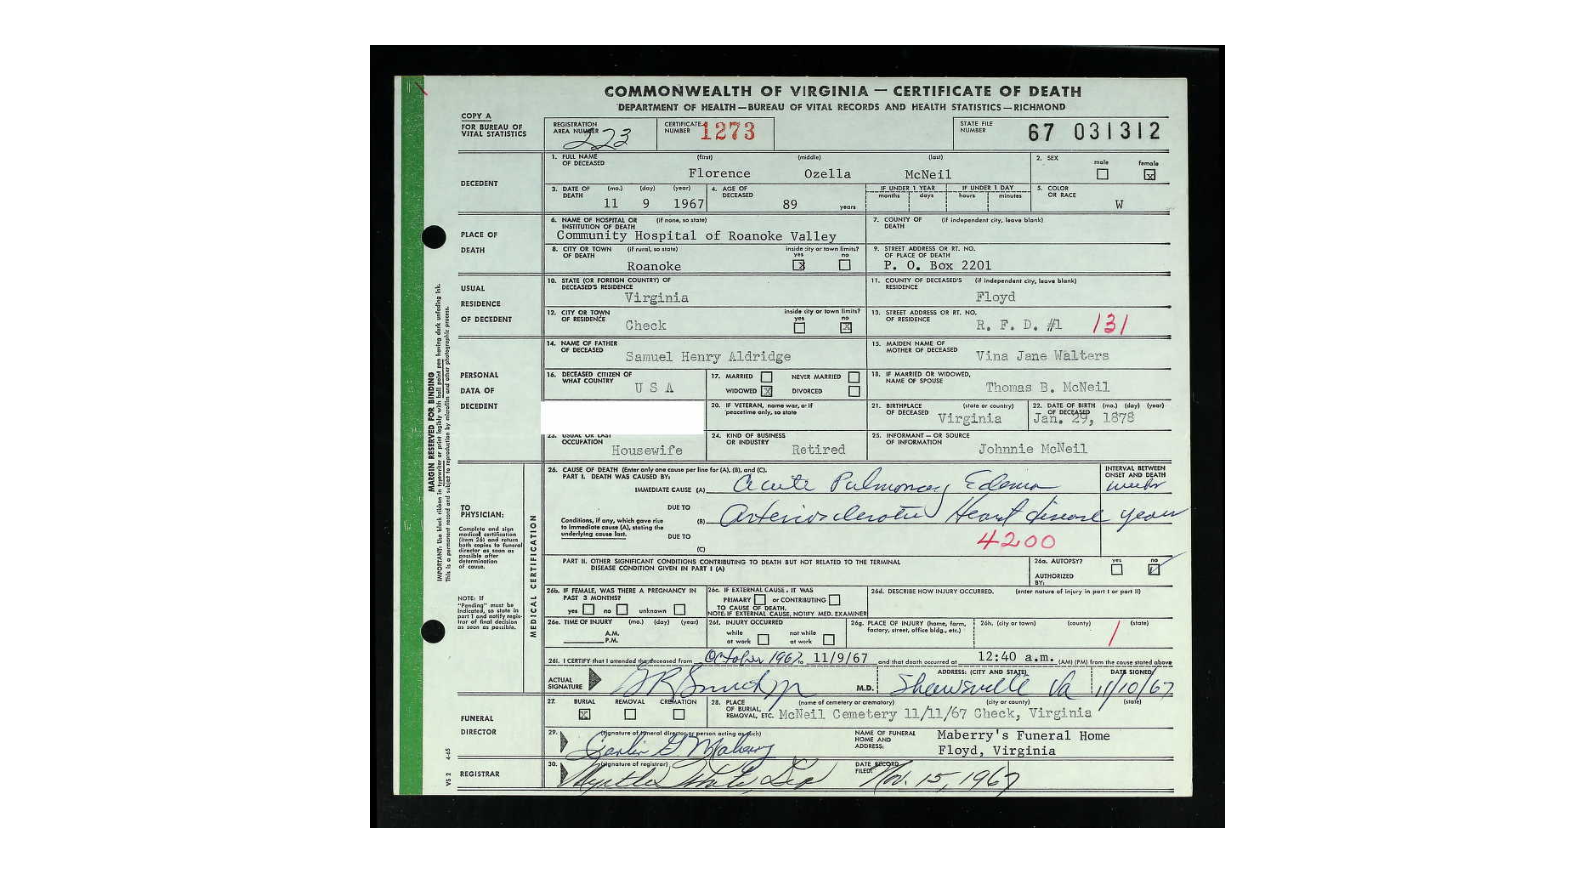 COMMONWEALTH OF VIRGINIA — CERTIFICATE OF DEATH
DEPARTMENT OF HEALTH — BUREAU OF VITAL RECORDS AND HEALTH STATISTICS — RICHMOND
COPY A
FOR BUREAU OF VITAL STATISTICS
REGISTRATION AREA NUMBER 223
CERTIFICATE NUMBER 1273
STATE FILE NUMBER 67 031312
DECEDENT
1. FULL NAME OF DECEASED (first) (middle) (last)
Florence Ozella McNeil
2. SEX male female x
3. DATE OF DEATH (mo.) (day) (year)
11 9 1967
4. AGE OF DECEASED 89 years
IF UNDER 1 YEAR months days
IF UNDER 1 DAY hours minutes
5. COLOR OR RACE W
PLACE OF DEATH
6. NAME OF HOSPITAL OR INSTITUTION OF DEATH (if none, so state)
Community Hospital of Roanoke Valley
7. COUNTY OF DEATH (if independent city, leave blank)
8. CITY OR TOWN OF DEATH (if rural, so state)
Roanoke
inside city or town limits? yes x no
9. STREET ADDRESS OR RT. NO. OF PLACE OF DEATH
P. O. Box 2201
USUAL RESIDENCE OF DECEDENT
10. STATE (OR FOREIGN COUNTRY) OF DECEASED'S RESIDENCE
Virginia
11. COUNTY OF DECEASED'S RESIDENCE (if independent city, leave blank)
Floyd
12. CITY OR TOWN OF RESIDENCE
Check
inside city or town limits? yes no x
13. STREET ADDRESS OR RT. NO. OF RESIDENCE
R. F. D. #1 131
PERSONAL DATA OF DECEDENT
14. NAME OF FATHER OF DECEASED
Samuel Henry Aldridge
15. MAIDEN NAME OF MOTHER OF DECEASED
Vina Jane Walters
16. DECEASED CITIZEN OF WHAT COUNTRY
U S A
17. MARRIED NEVER MARRIED
WIDOWED x DIVORCED
18. IF MARRIED OR WIDOWED, NAME OF SPOUSE
Thomas B. McNeil
20. IF VETERAN, name war, or if peacetime only, so state
21. BIRTHPLACE OF DECEASED (state or country)
Virginia
22. DATE OF BIRTH OF DECEASED (mo.) (day) (year)
Jan. 29, 1878
23. USUAL OR LAST OCCUPATION
Housewife
24. KIND OF BUSINESS OR INDUSTRY
Retired
25. INFORMANT — OR SOURCE OF INFORMATION
Johnnie McNeil
MARGIN RESERVED FOR BINDING
TO PHYSICIAN:
Complete and sign medical certification (item 26) and return both copies to funeral director as soon as possible after determination of cause.
NOTE: If "Pending" must be indicated, so state in part I and notify registrar of final decision as soon as possible.
MEDICAL CERTIFICATION
26. CAUSE OF DEATH (Enter only one cause per line for (A), (B), and (C).
PART I. DEATH WAS CAUSED BY:
INTERVAL BETWEEN ONSET AND DEATH
IMMEDIATE CAUSE (A) Acute Pulmonary Edema weeks
DUE TO
Conditions, if any, which gave rise to immediate cause (A), stating the underlying cause last.
(B) Arteriosclerotic Heart disease years
DUE TO
4200
(C)
PART II. OTHER SIGNIFICANT CONDITIONS CONTRIBUTING TO DEATH BUT NOT RELATED TO THE TERMINAL DISEASE CONDITION GIVEN IN PART I (A)
26a. AUTOPSY? yes no
AUTHORIZED BY:
26b. IF FEMALE, WAS THERE A PREGNANCY IN PAST 3 MONTHS?
yes no unknown
26c. IF EXTERNAL CAUSE, IT WAS
PRIMARY or CONTRIBUTING
TO CAUSE OF DEATH.
NOTE: IF EXTERNAL CAUSE, NOTIFY MED. EXAMINER
26d. DESCRIBE HOW INJURY OCCURRED. (enter nature of injury in part I or part II)
26e. TIME OF INJURY (mo.) (day) (year)
A.M.
P.M.
26f. INJURY OCCURRED
while at work not while at work
26g. PLACE OF INJURY (home, farm, factory, street, office bldg., etc.)
26h. (city or town) (county) (state)
26i. I CERTIFY that I attended the deceased from October 1967 to 11/9/67 and that death occurred at 12:40 a.m. (AM) (PM) from the cause stated above
ACTUAL SIGNATURE
M.D.
ADDRESS: (CITY AND STATE)
Shawsville Va
DATE SIGNED
11/10/67
FUNERAL DIRECTOR
27. BURIAL x REMOVAL CREMATION
28. PLACE OF BURIAL, REMOVAL, ETC. (name of cemetery or crematory) (city or county) (state)
McNeil Cemetery 11/11/67 Check, Virginia
29. (signature of funeral director or person acting as such)
NAME OF FUNERAL HOME AND ADDRESS:
Maberry's Funeral Home
Floyd, Virginia
REGISTRAR
30. (signature of registrar)
DATE RECORD FILED:
Nov. 15, 1967
VS 2 4-65